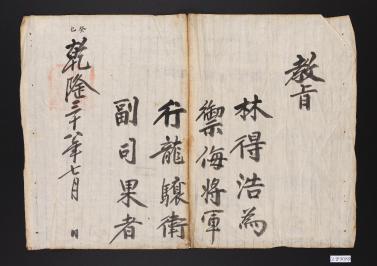 教旨
林得浩為
禦侮將軍
行龍驤衛
副司果者
乾隆三十八年七月 日
癸巳